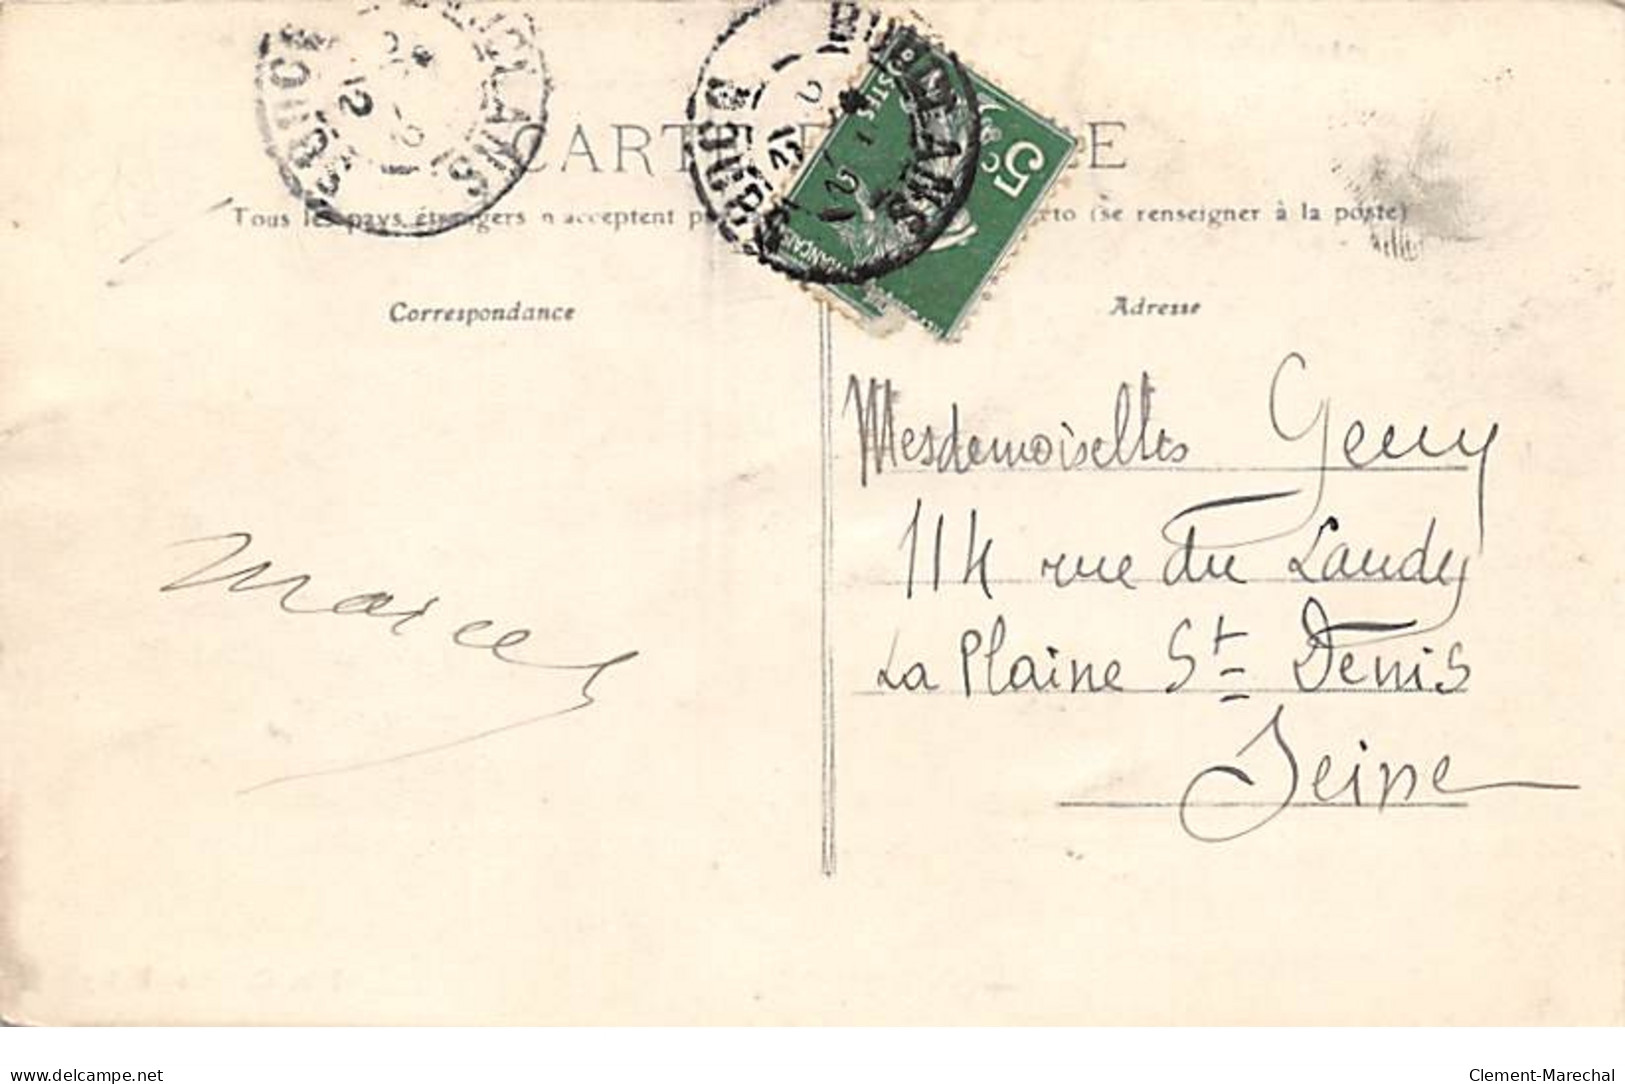 CARTE
Tous les pays étrangers n'acceptent
(se renseigner à la poste)
Correspondance
Adresse
5c
POSTES
12
12
Marcel
Mesdemoiselles Gemy
114 rue du Landy
La Plaine St Denis
Seine
delcampe.net
Clement-Marechal